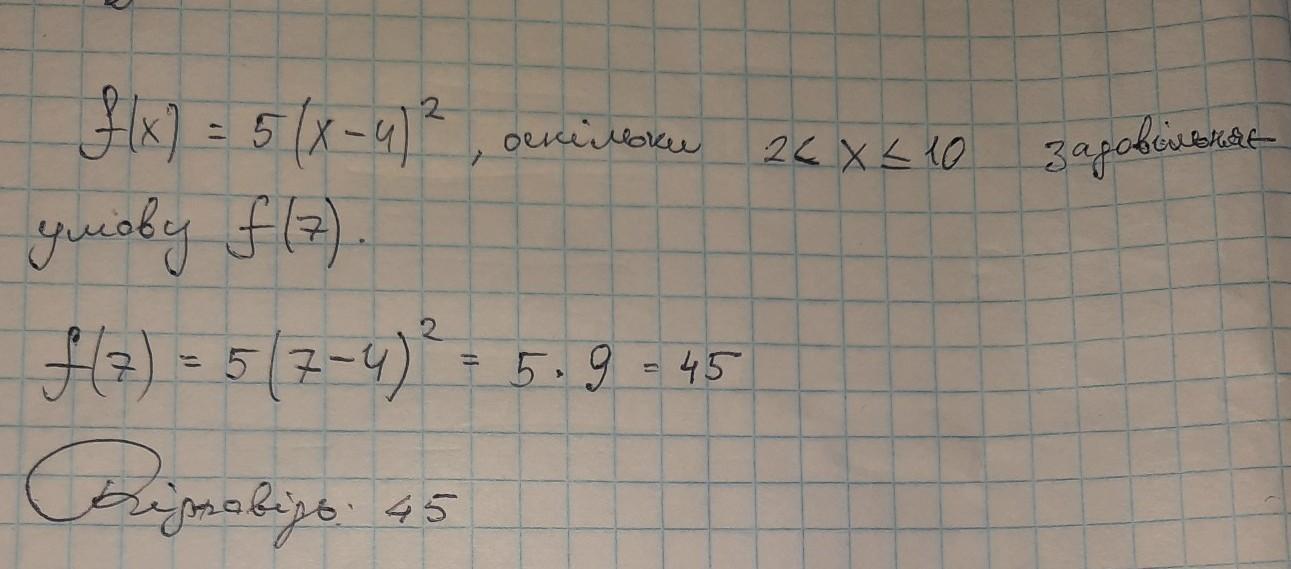 f(x) = 5(x-4)², оскільки 2< x ≤ 10 задовільняє
умову f(7).
f(7) = 5(7-4)² = 5·9 = 45
Відповідь: 45